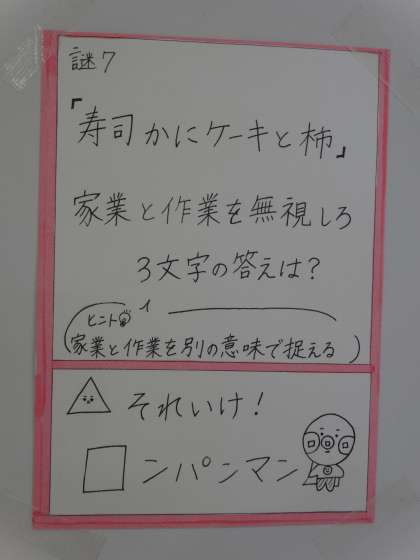 謎7
『寿司かにケーキと柿』
家業と作業を無視しろ
3文字の答えは?
ヒント
家業と作業を別の意味で捉える
それいけ!
ンパンマン